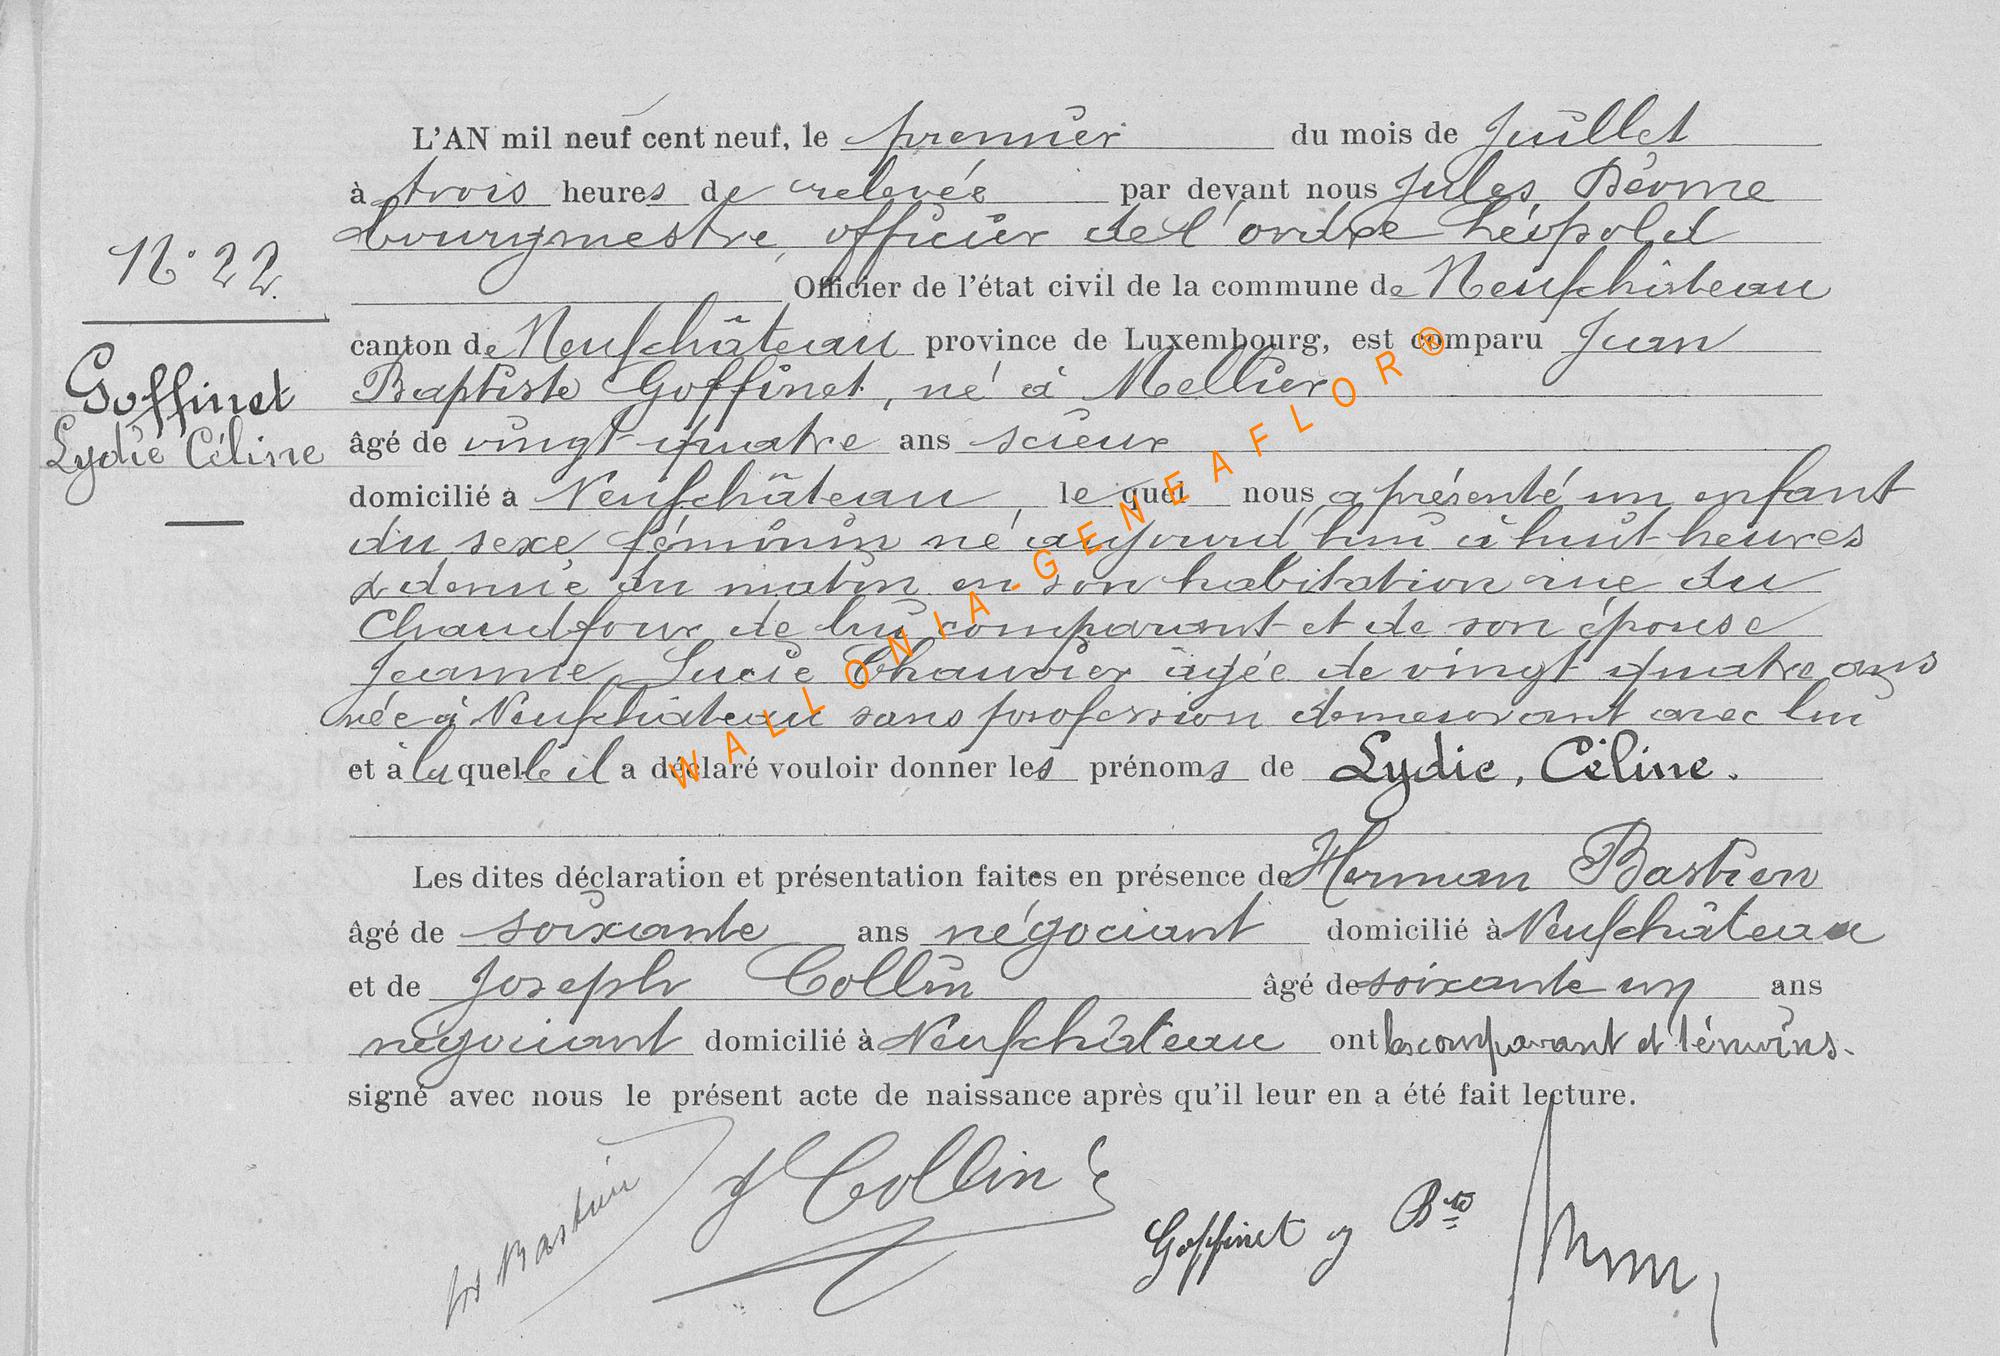 L'AN mil neuf cent neuf, le premier du mois de Juillet
à trois heures de relevée par devant nous Jules
bourgmestre, officier de l'ordre Léopold
N° 22
Officier de l'état civil de la commune de Neufchâteau
canton de Neufchâteau province de Luxembourg, est comparu Jean
Goffinet
Baptiste Goffinet, né à Mellier
Lydie Céline
âgé de vingt-quatre ans scieur
domicilié à Neufchâteau, lequel nous a présenté un enfant
du sexe féminin né aujourd'hui à huit heures
& demie du matin en son habitation rue du
Chaudfour de lui comparant et de son épouse
Jeanne Lucie Chauvier âgée de vingt quatre ans
née à Neufchâteau sans profession demeurant avec lui
et à laquelle il a déclaré vouloir donner les prénoms de Lydie, Céline.
Les dites déclaration et présentation faites en présence de Herman Bastien
âgé de soixante ans négociant domicilié à Neufchâteau
et de Joseph Collin âgé de soixante un ans
négociant domicilié à Neufchâteau ont les comparant et témoins.
signé avec nous le présent acte de naissance après qu'il leur en a été fait lecture.
Bastien J Collin Goffinet J Bte
WALLONIA-GENEAFLOR®